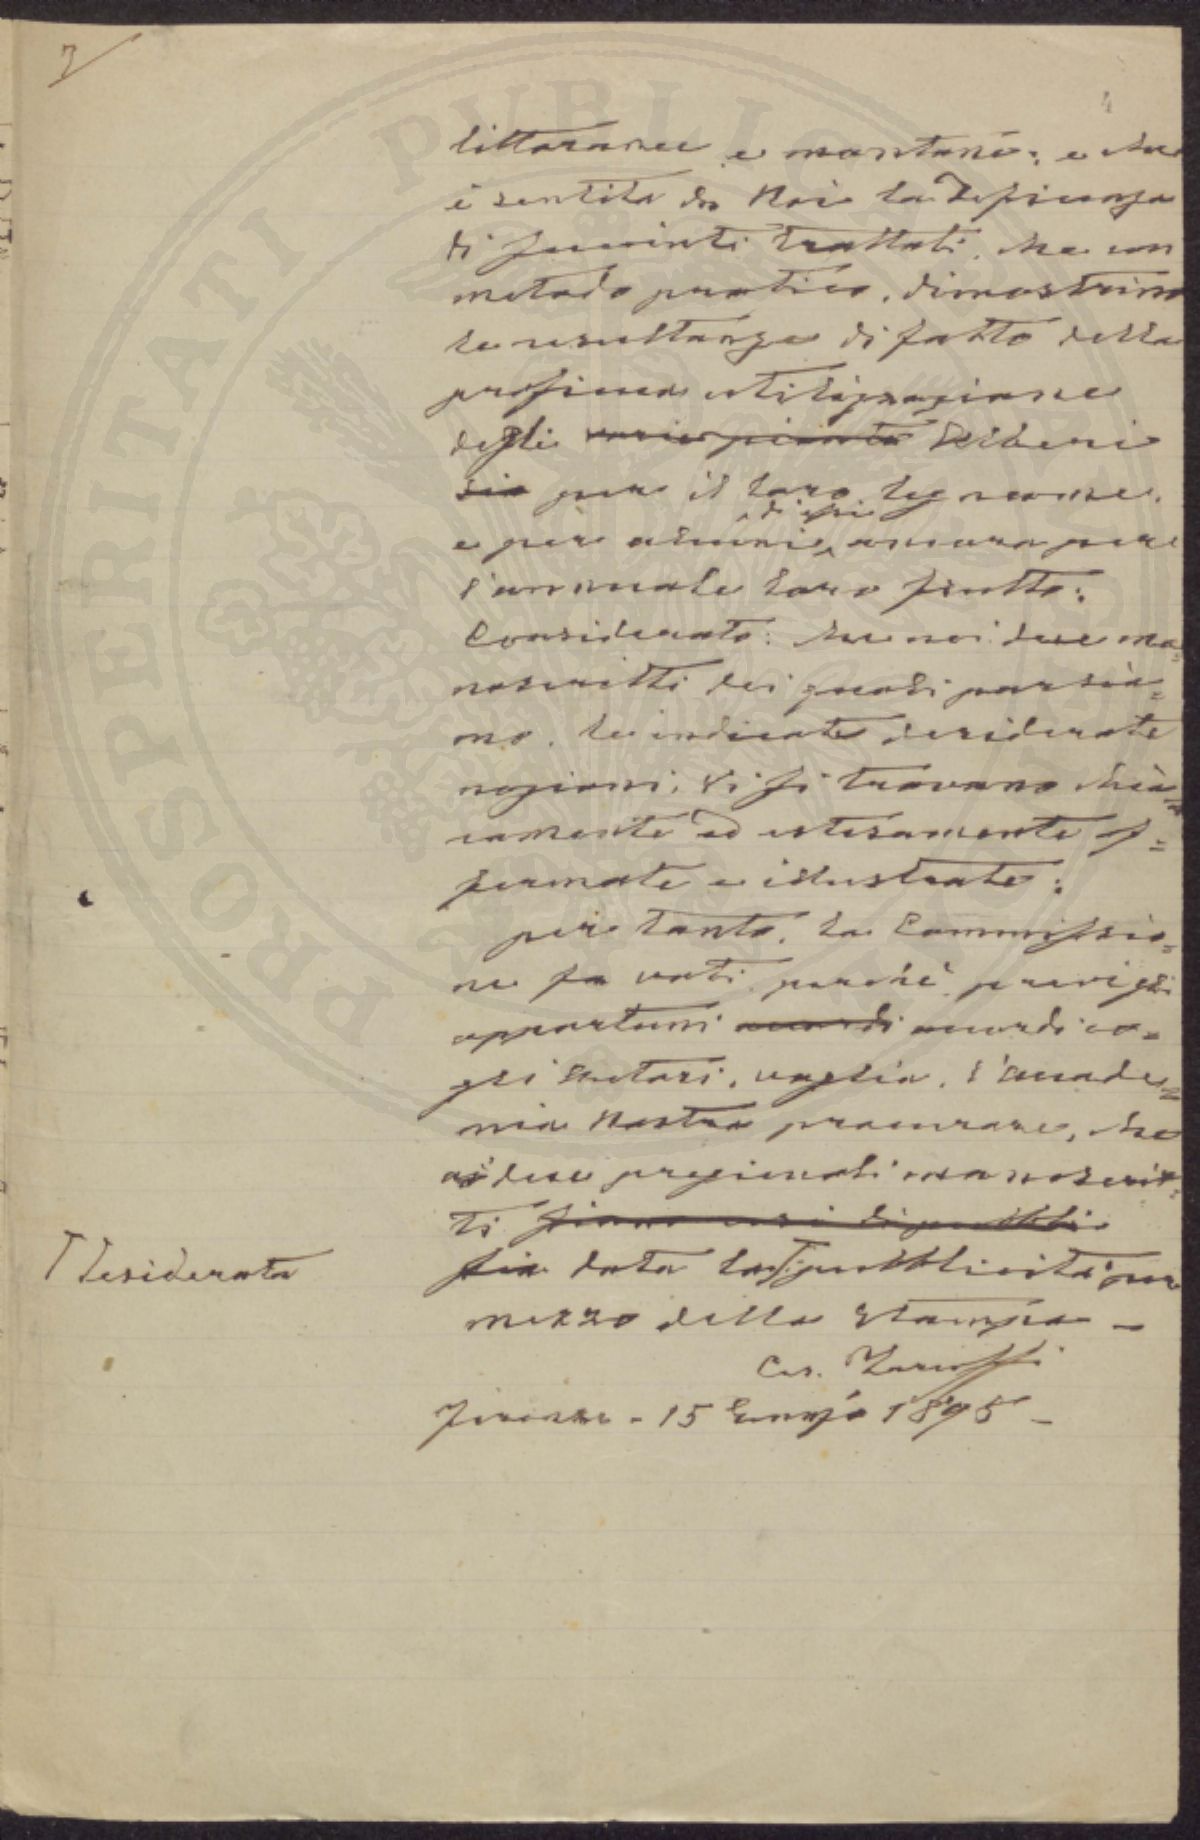 7
littoranee e montane; e che
è sentita da Noi la deficienza
di succinti trattati, che con
metodo pratico, dimostrino
le resultanze di fatto della
proficua utilizzazione
degli varie piante Alberi
sia per il loro legname,
di essi
e per alcuni ancora per
l'annuale loro frutto;
Considerato: che nei due ma=
noscritti dei quali parlia=
mo, le indicate desiderate
nozioni, vi si trovano chia=
ramente ed estesamente af=
fermate e illustrate;
per tanto, la Commissio=
ne fa voti, perchè previ gli
opportuni accordi accordi co=
gli Autori, voglia, l'Accade=
mia Nostra procurare, che
ai due pregievoli manoscrit=
ti siano resi di pubbli
sia data la pubblicità per
T desiderata
mezzo della Stampa -
Ces.
Firenze - 15 1895 -
PROSPERITATI PUBLICAE